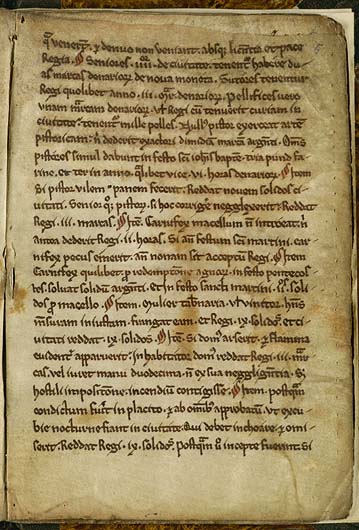 q̃ veneruꝫ. ⁊ denuo non veniant. absqꝫ licentia et pace
Regia. Seniores .iiii. de ciuitate. tenentʳ habere du-
as marcas denarioꝝ de noua moneta. Sutores tenentur
Regi quolibet anno .iii. denarioꝝ. Pellifices vero
vnam marcam denarioꝝ. vꝉ Regi cū tenuerit curiam in
ciuitate. tenentʳ mille pelles. Nullꝰ pistor exerceat artē
pistoricam. ñ dederit exactori dimidiā marcā argēti. Oms̄
pistores simul dabunt in festo sc̄i ioħis bapte. tria pund fa-
rine. et ter in anno. qualibet vice .vi. horas denarioꝝ. Item
Si pistor vilem panem fecerit. Reddat nouem solidos ci-
uitati. Senior pistorꝫ. si hoc corrige neglexerit. Reddat
Regi .iii. marcas. Itē. Carnifex macellum ñ introeat. ñ
antea dederit Regi .ii. horas. Si añ festum sc̄i martini. car-
nifex pecus emerit. añ noñam sit accepti Regi. Item
Carnifex quilibet p̱ redemptione in festo pentecos-
tes. soluat solidū argēti. Et in festo sancti martini .ii. soli-
dos p̱ macello. Item. Mulier tab̄naria. vꝉ vinitor. hñs
mēsuram iniustam. fungatur eam. et Regi .ix. solidos. et ci-
uitati reddat .ix. solidos. Itē. Si domꝰ arserit. ⁊ flamma
euident apparuerit. Inhabitator domꝰ reddat Regi .iii. mar-
cas. vel iuret manu duodecima. ñ ex sua neggligentia. Si
hostili impositione. incendiū contigisse. Item. postqam̃
condictum fuerit in placito. ⁊ ab omībꝫ approbatū. vt excu-
bie nocturne fiant in ciuitate. Qui debet inchoare. ⁊ omi-
serit. Reddat Regi .ix. solidos. Postqam̃ u̓ incepte fuerint. Si